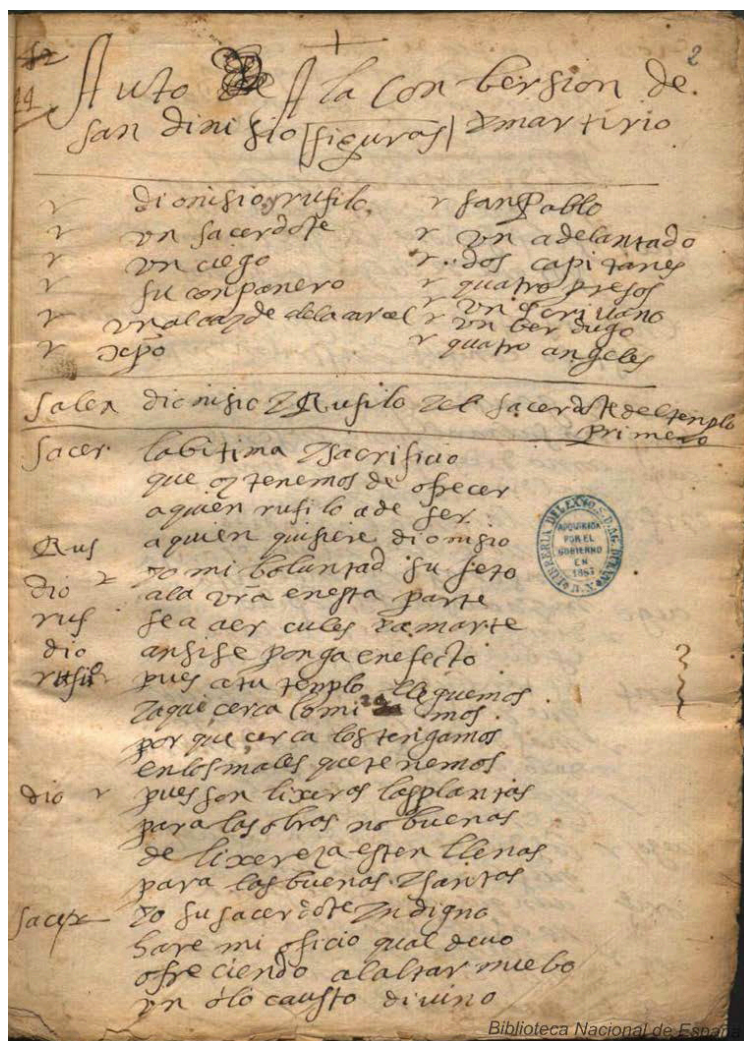 2
14
Auto de A la Conbersion de
san dinisio [figuras] y martirio
dionisio y rusilo
r san Pablo
r un sacerdote
r un adelantado
r un ciego
r dos capitanes
r su conpanero
r quatro presos
r un alcayde dela carcel
r un escriuano
r un berdugo
r xpo
r quatro angeles
salen dionisio y Rusilo y el sacerdote del templo
primero
sacer la bitima y sacrificio
que oy tenemos de ofrecer
a quien rusilo a de ser
Rus a quien quisiere dionisio
dio r yo mi boluntad sujeto
rus ala vra en esta parte
dio sea a ercules y a marte
rusil ansi se ponga en efecto
pues a tu templo lleguemos
y aqui cerca
por que cerca los tengamos
en los males que tenemos
dio r pues son lixeros las plantas
para las obras no buenas
de lixereza esten llenas
para las buenas y santas
sacer yo su sacerdote yndigno
hare mi oficio qual deuo
ofreciendo al altar nuebo
un olocausto diuino
LIBRERIA DEL EXMO. S. D. AG. DURAN
ADQUIRIDA
POR EL
GOBIERNO
EN
1863
B. N.
Biblioteca Nacional de España